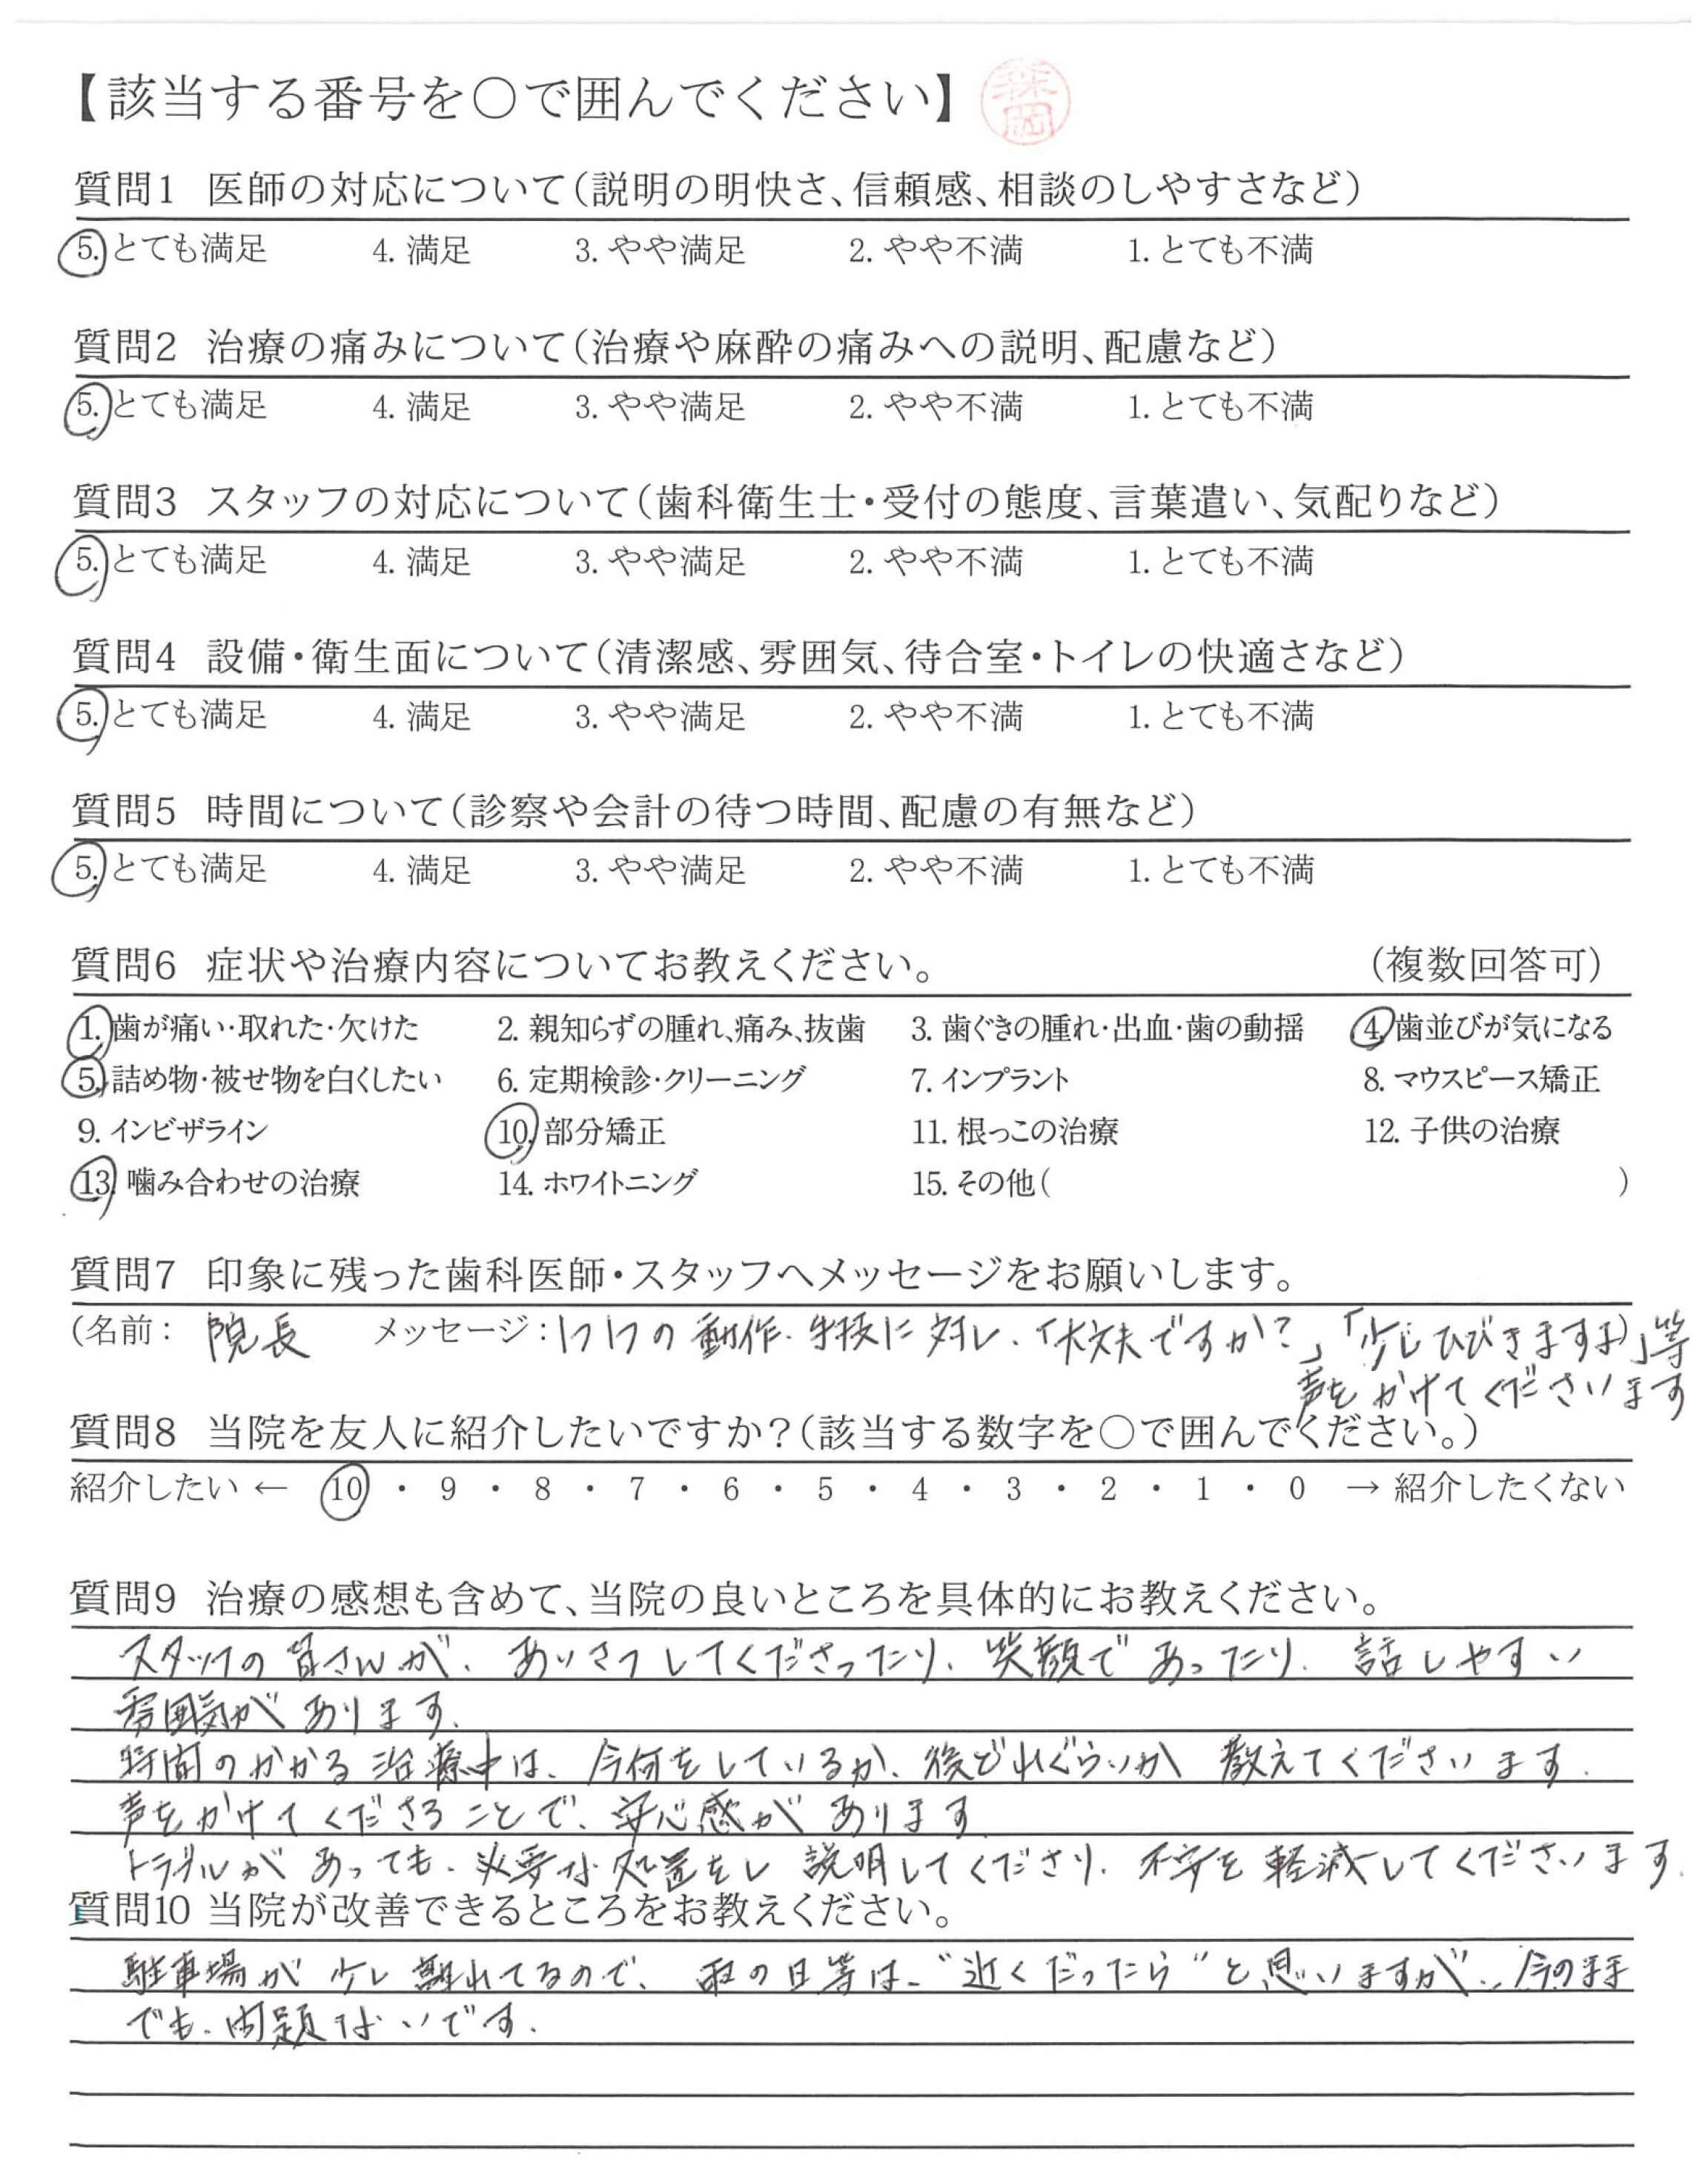 【該当する番号を○で囲んでください】 森岡
質問1 医師の対応について(説明の明快さ、信頼感、相談のしやすさなど)
5. とても満足 4. 満足 3. やや満足 2. やや不満 1. とても不満
質問2 治療の痛みについて(治療や麻酔の痛みへの説明、配慮など)
5. とても満足 4. 満足 3. やや満足 2. やや不満 1. とても不満
質問3 スタッフの対応について(歯科衛生士・受付の態度、言葉遣い、気配りなど)
5. とても満足 4. 満足 3. やや満足 2. やや不満 1. とても不満
質問4 設備・衛生面について(清潔感、雰囲気、待合室・トイレの快適さなど)
5. とても満足 4. 満足 3. やや満足 2. やや不満 1. とても不満
質問5 時間について(診察や会計の待つ時間、配慮の有無など)
5. とても満足 4. 満足 3. やや満足 2. やや不満 1. とても不満
質問6 症状や治療内容についてお教えください。 (複数回答可)
1. 歯が痛い・取れた・欠けた 2. 親知らずの腫れ、痛み、抜歯 3. 歯ぐきの腫れ・出血・歯の動揺 4. 歯並びが気になる
5. 詰め物・被せ物を白くしたい 6. 定期検診・クリーニング 7. インプラント 8. マウスピース矯正
9. インビザライン 10. 部分矯正 11. 根っこの治療 12. 子供の治療
13. 噛み合わせの治療 14. ホワイトニング 15. その他( )
質問7 印象に残った歯科医師・スタッフへメッセージをお願いします。
(名前: 院長 メッセージ: 1つ1つの動作、手技に対し、「大丈夫ですか?」「少しひびきますよ)」等
声をかけてくださいます
質問8 当院を友人に紹介したいですか?(該当する数字を○で囲んでください。)
紹介したい ← 10 ・ 9 ・ 8 ・ 7 ・ 6 ・ 5 ・ 4 ・ 3 ・ 2 ・ 1 ・ 0 → 紹介したくない
質問9 治療の感想も含めて、当院の良いところを具体的にお教えください。
スタッフの皆さんが、あいさつしてくださったり、笑顔であったり、話しやすい
雰囲気があります。
時間のかかる治療中は、今何をしているか、後どれぐらいか 教えてくださいます.
声をかけてくださることで、安心感があります.
トラブルがあっても、必要な処置をし 説明してくださり、不安を軽減してくださいます.
質問10 当院が改善できるところをお教えください。
駐車場が少し離れてるので、雨の日等は、“近くだったら”と思いますが、今のまま
でも、問題ないです.